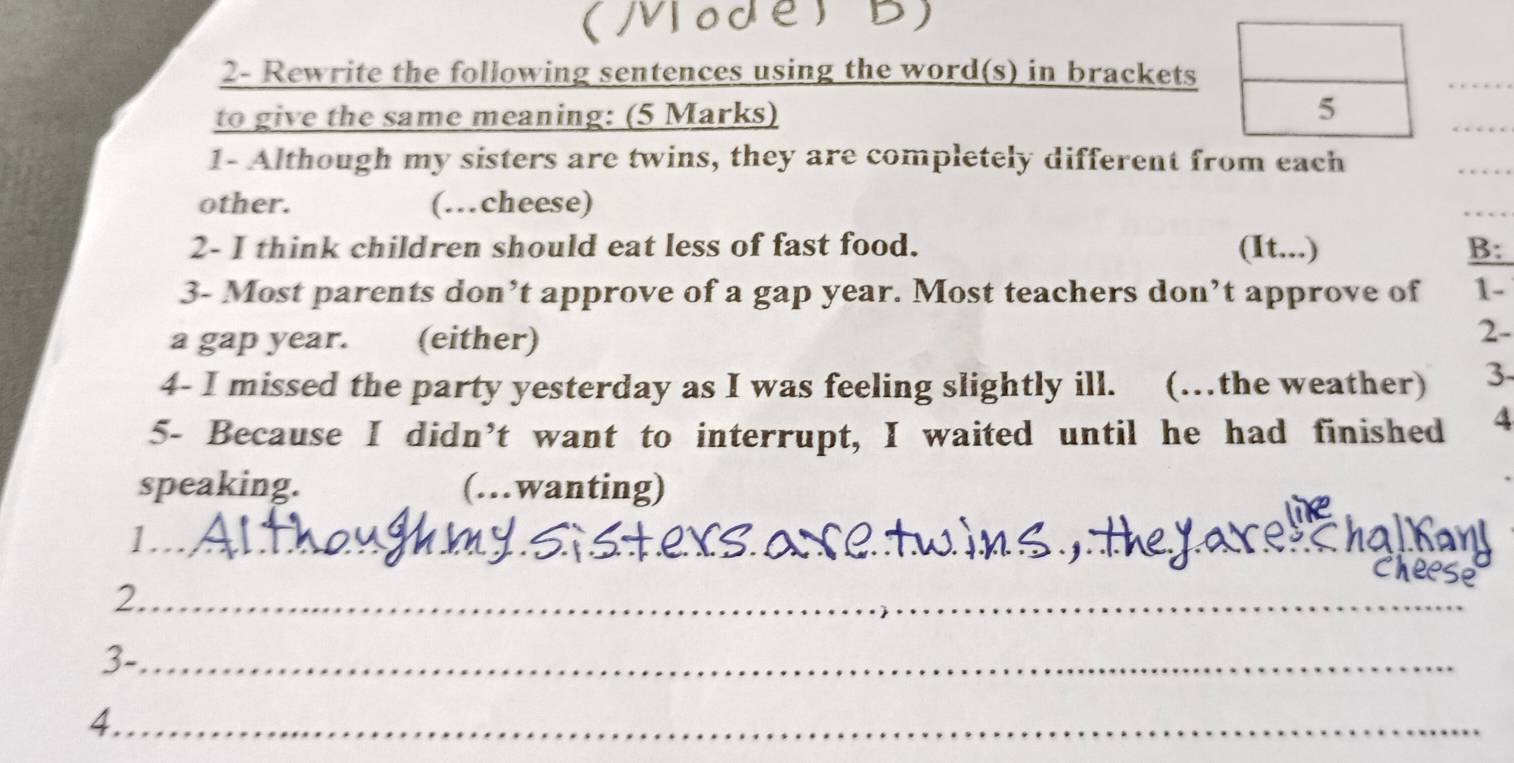 (Model B)
2- Rewrite the following sentences using the word(s) in brackets
to give the same meaning: (5 Marks)
5
1- Although my sisters are twins, they are completely different from each
other. (...cheese)
2- I think children should eat less of fast food. (It...)
3- Most parents don't approve of a gap year. Most teachers don't approve of
a gap year. (either)
4- I missed the party yesterday as I was feeling slightly ill. (...the weather)
5- Because I didn't want to interrupt, I waited until he had finished
speaking. (...wanting)
1... Although my sisters are twins, they are like chalk and
cheese
2
3-
4
B:
1-
2-
3-
4